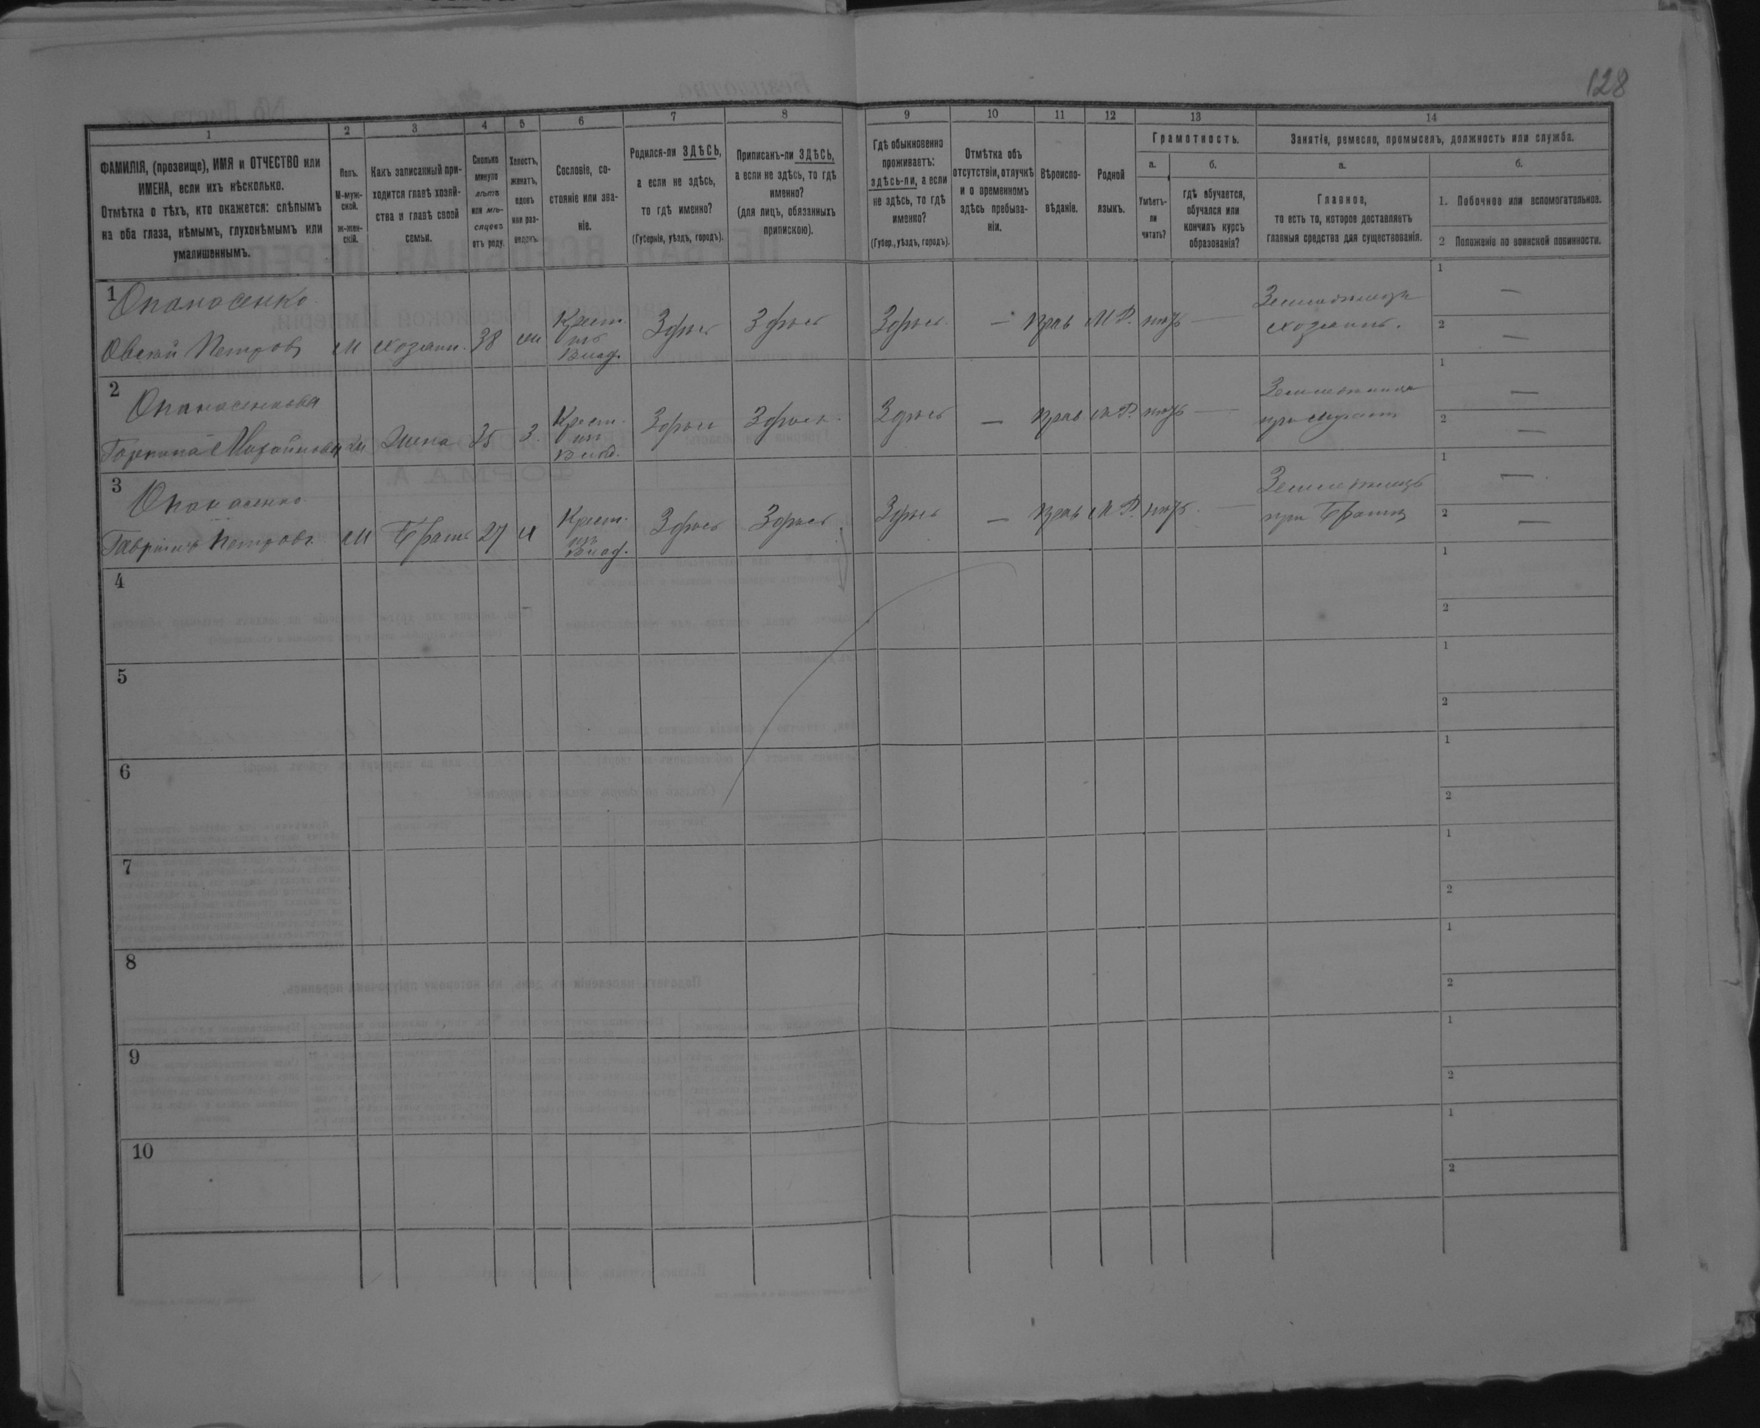 128
1
2
3
4
5
6
7
8
9
10
11
12
13
14
ФАМИЛІЯ, (прозвище), ИМЯ и ОТЧЕСТВО или
ИМЕНА, если ихъ нѣсколько.
Отмѣтка о тѣхъ, кто окажется: слѣпымъ
на оба глаза, нѣмымъ, глухонѣмымъ или
умалишеннымъ.
Полъ.
М-муж-
ской.
ж-жен-
скій.
Какъ записанный при-
ходится главѣ хозяй-
ства и главѣ своей
семьи.
Сколько
минуло
лѣтъ
или мѣ-
сяцевъ
отъ роду.
Холостъ,
женатъ,
вдовъ
или раз-
веденъ.
Сословіе, со-
стояніе или зва-
ніе.
Родился-ли ЗДѢСЬ,
а если не здѣсь,
то гдѣ именно?
(Губернія, уѣздъ, городъ).
Приписанъ-ли ЗДѢСЬ,
а если не здѣсь, то гдѣ
именно?
(для лицъ, обязанныхъ
припискою).
Гдѣ обыкновенно
проживаетъ:
здѣсь-ли, а если
не здѣсь, то гдѣ
именно?
(Губер., уѣздъ, городъ).
Отмѣтка объ
отсутствіи, отлучкѣ
и о временномъ
здѣсь пребыва-
ніи.
Вѣроиспо-
вѣданіе.
Родной
языкъ.
Грамотность.
а.
Умѣетъ-
ли
читать?
б.
гдѣ обучается,
обучался или
кончилъ курсъ
образованія?
Занятіе, ремесло, промыселъ, должность или служба.
а.
Главное,
то есть то, которое доставляетъ
главныя средства для существованія.
б.
1. Побочное или вспомогательное.
2 Положеніе по воинской повинности.
1 Опанасенко
Овсѣй Петровъ м хозяин. 38 ж Крест. изъ Влад. Здѣсь Здѣсь Здѣсь — прав М.Р. нѣтъ — Земледѣлецъ хозяинъ. 1 — 2 —
2 Опанасенкова
Михайлова ж Жена 35 З Крест. изъ Влад. Здѣсь Здѣсь Здѣсь — прав М.Р. нѣтъ — при мужѣ 1 — 2 —
3 Опанасенко
Гавріилъ Петровъ м Братъ 27 ж Крест. изъ Влад. Здѣсь Здѣсь Здѣсь — прав М.Р. нѣтъ — Земледѣлецъ при Братѣ 1 — 2 —
4 1 2
5 1 2
6 1 2
7 1 2
8 1 2
9 1 2
10 1 2